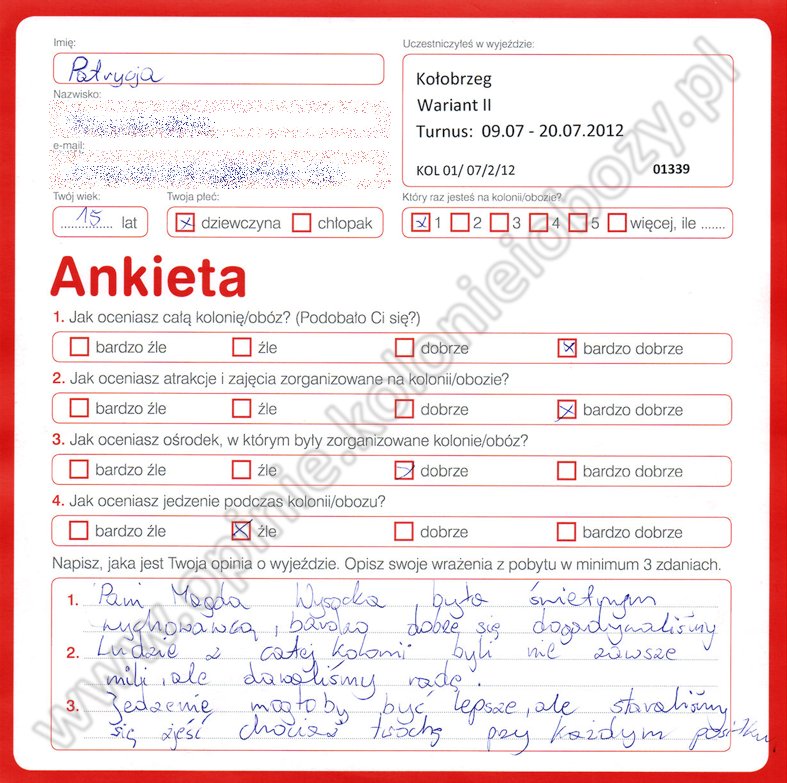 Imię:
Patrycja
Nazwisko:
e-mail:
Twój wiek:
15 lat
Twoja płeć:
dziewczyna chłopak
Uczestniczyłeś w wyjeździe:
Kołobrzeg
Wariant II
Turnus: 09.07 - 20.07.2012
KOL 01/ 07/2/12 01339
Który raz jesteś na kolonii/obozie?
1 2 3 4 5 więcej, ile .......
Ankieta
1. Jak oceniasz całą kolonię/obóz? (Podobało Ci się?)
bardzo źle źle dobrze bardzo dobrze
2. Jak oceniasz atrakcje i zajęcia zorganizowane na kolonii/obozie?
bardzo źle źle dobrze bardzo dobrze
3. Jak oceniasz ośrodek, w którym były zorganizowane kolonie/obóz?
bardzo źle źle dobrze bardzo dobrze
4. Jak oceniasz jedzenie podczas kolonii/obozu?
bardzo źle źle dobrze bardzo dobrze
Napisz, jaka jest Twoja opinia o wyjeździe. Opisz swoje wrażenia z pobytu w minimum 3 zdaniach.
1. Pani Magda Wysocka była świetnym
wychowawcą, bardzo dobrze się dogadywaliśmy
2. Ludzie z całej kolonii byli nie zawsze
mili, ale dawaliśmy radę.
3. Jedzenie mogłoby być lepsze, ale staraliśmy
się zjeść chociaż trochę przy każdym posiłku
www.opinie.kolonieiobozy.pl